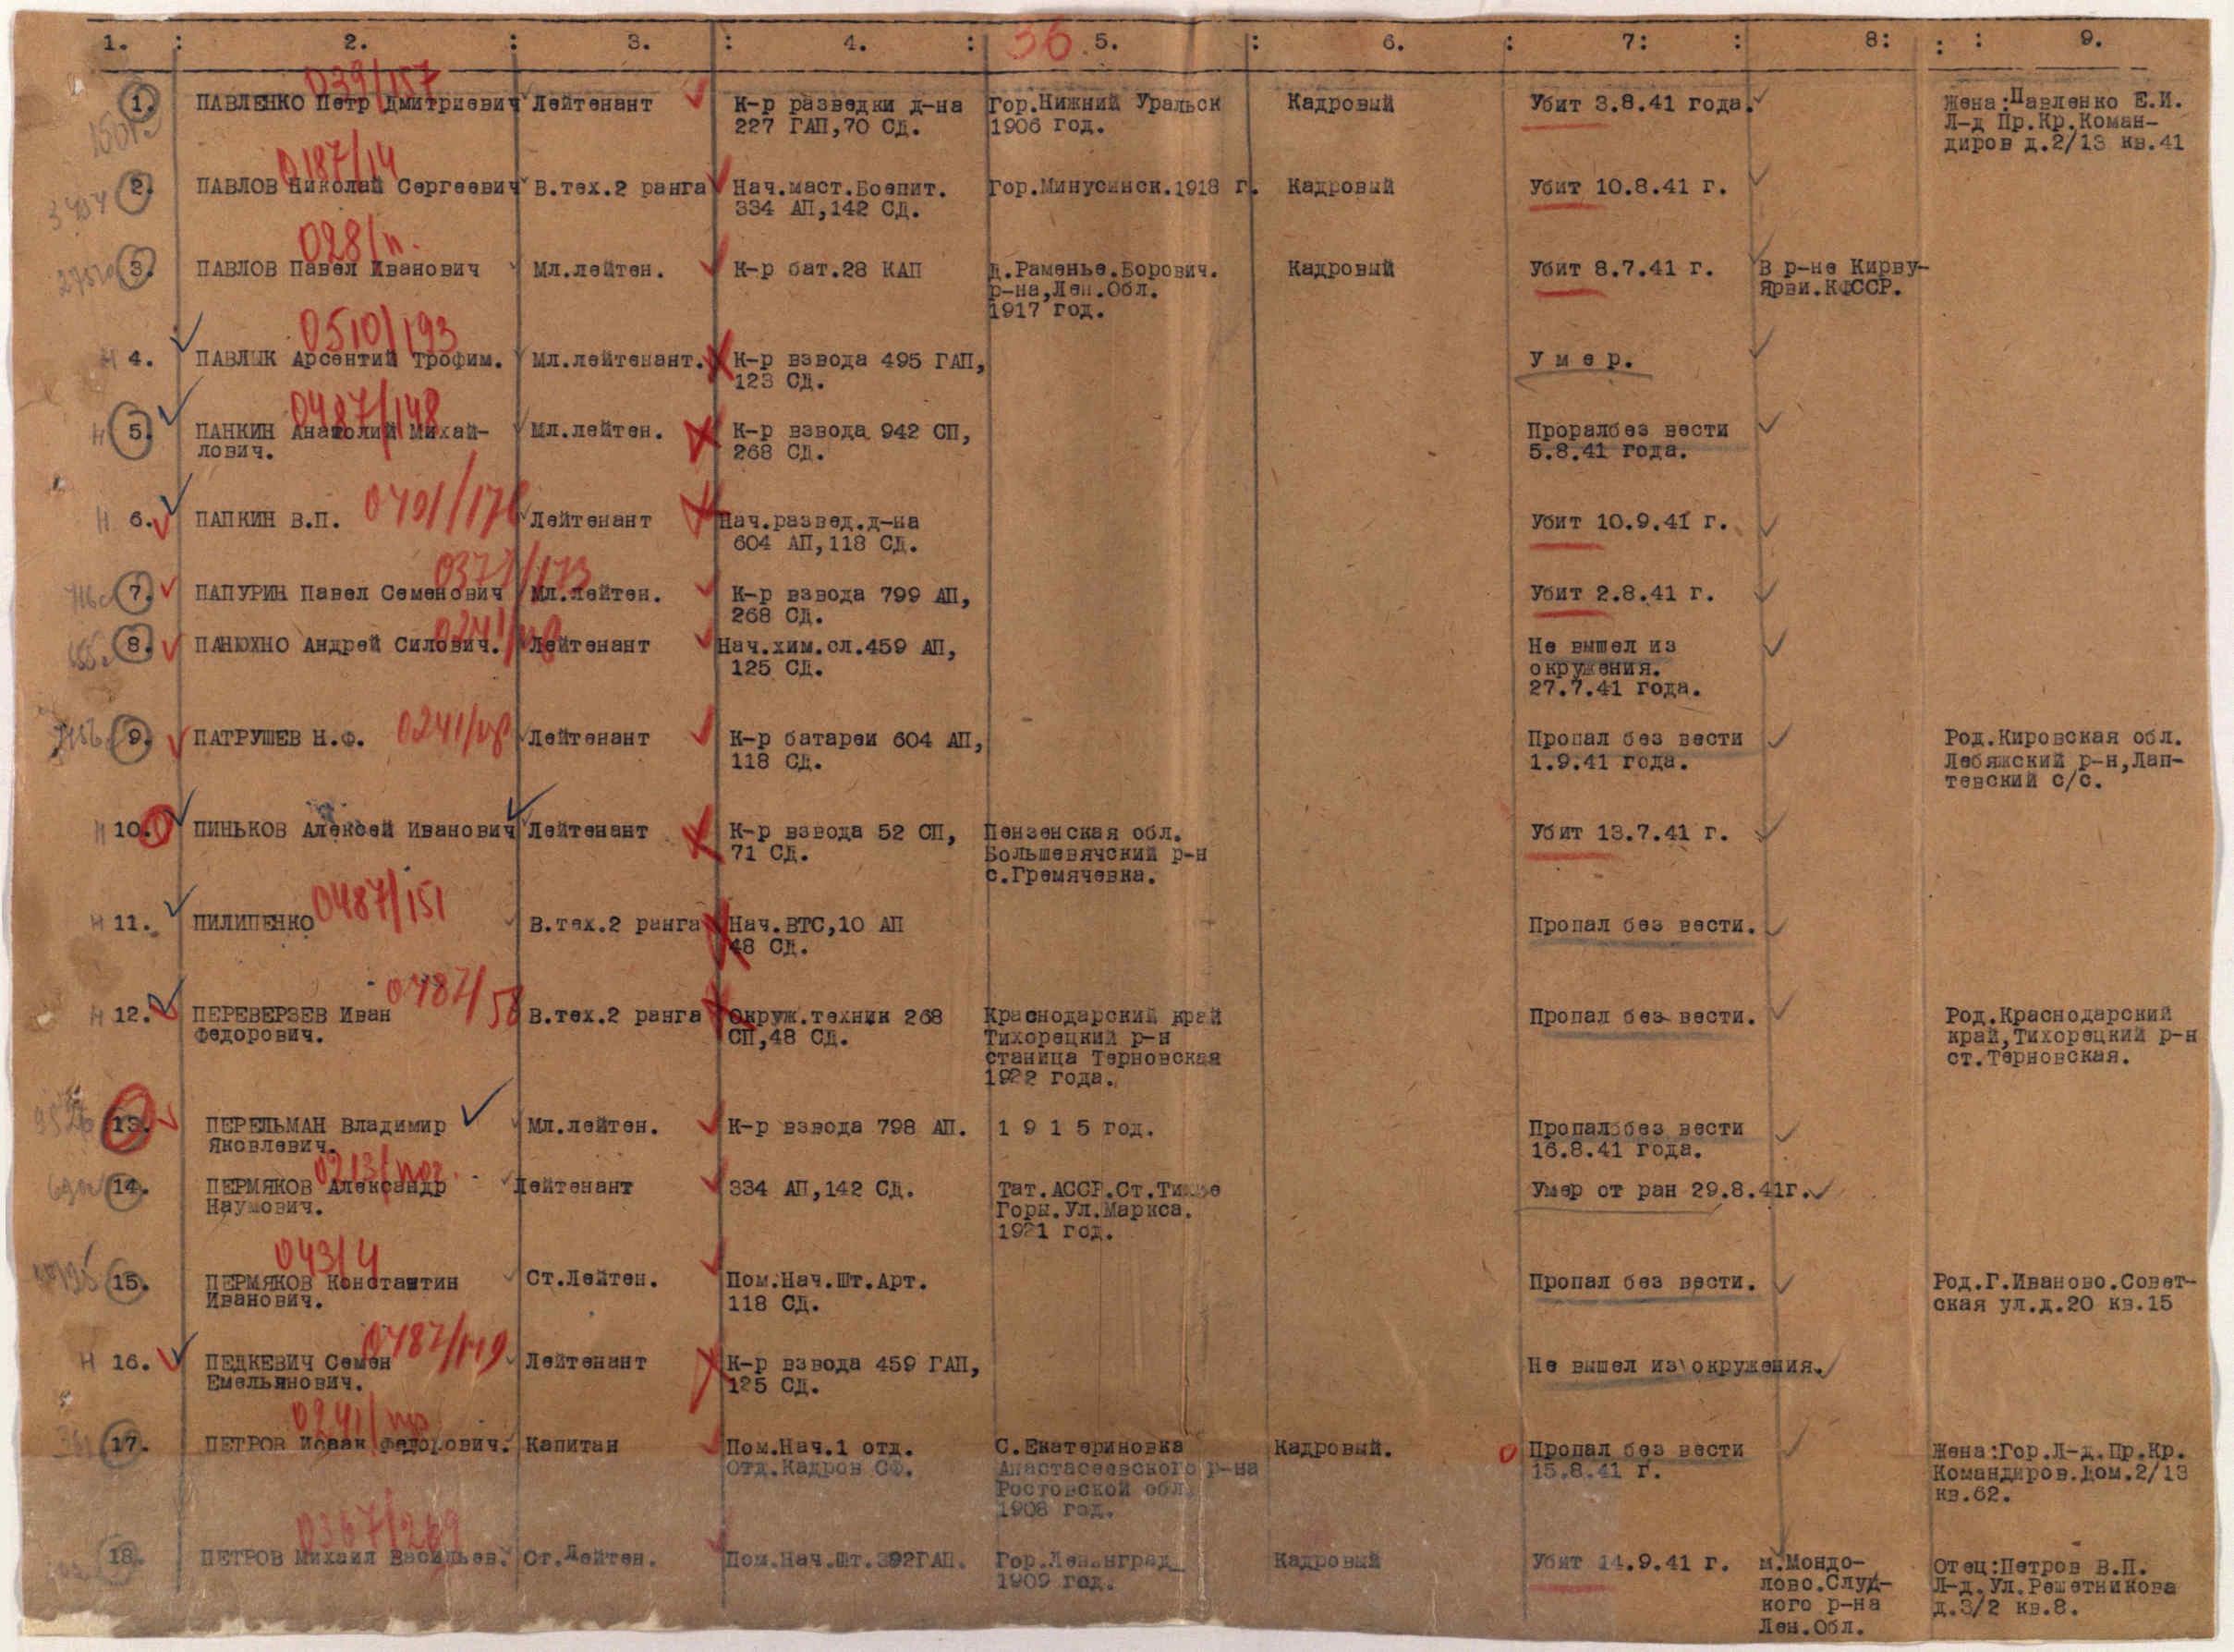 36
1. : 2. : 3. : 4. : 5. : 6. : 7: : 8: : : 9.
039/157
1. ПАВЛЕНКО Петр Дмитриевич Лейтенант К-р разведки д-на Гор.Нижний Уральск Кадровый Убит 3.8.41 года. Жена:Павленко Е.И.
227 ГАП,70 СД. 1906 год. Л-д Пр.Кр.Коман-
диров д.2/13 кв.41
0187/14
2. ПАВЛОВ Николай Сергеевич В.тех.2 ранга Нач.маст.Боепит. Гор.Минусинск.1918 г. Кадровый Убит 10.8.41 г.
334 АП,142 СД.
028/п.
3. ПАВЛОВ Павел Иванович Мл.лейтен. К-р бат.28 КАП Д.Раменье.Борович. Кадровый Убит 8.7.41 г. В р-не Кирву-
р-на,Лен.Обл. Ярви.КФССР.
1917 год.
0510/193
4. ПАВЛЫК Арсентий Трофим. Мл.лейтенант. К-р взвода 495 ГАП, У м е р.
123 СД.
0487/148
5. ПАНКИН Анатолий Михай- Мл.лейтен. К-р взвода 942 СП, Проралбез вести
лович. 268 СД. 5.8.41 года.
6. ПАПКИН В.П. Лейтенант Нач.развед.д-на Убит 10.9.41 г.
604 АП,118 СД.
0377/173
7. ПАПУРИН Павел Семенович Мл.лейтен. К-р взвода 799 АП, Убит 2.8.41 г.
268 СД.
8. ПАНЮХНО Андрей Силович. Лейтенант Нач.хим.сл.459 АП, Не вышел из
125 СД. окружения.
27.7.41 года.
9. ПАТРУШЕВ Н.Ф. Лейтенант К-р батареи 604 АП, Пропал без вести Род.Кировская обл.
118 СД. 1.9.41 года. Лебяжский р-н,Лап-
тевский с/с.
10. ПИНЬКОВ Алексей Иванович Лейтенант К-р взвода 52 СП, Пензенская обл. Убит 13.7.41 г.
71 СД. Большевячский р-н
с.Гремячевка.
11. ПИЛИПЕНКО 0487/151 В.тех.2 ранга Нач.ВТС,10 АП Пропал без вести.
48 СД.
0487/58
12. ПЕРЕВЕРЗЕВ Иван В.тех.2 ранга Окруж.техник 268 Краснодарский край Пропал без вести. Род.Краснодарский
Федорович. СП,48 СД. Тихорецкий р-н край,Тихорецкий р-н
станица Терновская ст.Терновская.
1922 года.
13. ПЕРЕЛЬМАН Владимир Мл.лейтен. К-р взвода 798 АП. 1 9 1 5 год. Пропал без вести
Яковлевич. 16.8.41 года.
14. ПЕРМЯКОВ Александр Лейтенант 334 АП,142 СД. Тат.АССР.Ст. Умер от ран 29.8.41г.
Наумович. Горы.Ул.Маркса.
1921 год.
043/4
15. ПЕРМЯКОВ Константин Ст.Лейтен. Пом.Нач.Шт.Арт. Пропал без вести. Род.Г.Иваново.Совет-
Иванович. 118 СД. ская ул.д.20 кв.15
0487/149
16. ПЕДКЕВИЧ Семен Лейтенант К-р взвода 459 ГАП, Не вышел из окружения.
Емельянович. 125 СД.
17. ПЕТРОВ Исаак Федорович. Капитан Пом.Нач.1 отд. С.Екатериновка Кадровый. Пропал без вести Жена:Гор.Л-д.Пр.Кр.
Отд.Кадров СФ. Анастасеевского р-на 15.8.41 г. Командиров.Дом.2/13
Ростовской обл. кв.62.
1908 год.
0367/269
18. ПЕТРОВ Михаил Васильев. Ст.Лейтен. Пом.Нач.Шт.392ГАП. Гор.Ленинград Кадровый Убит 14.9.41 г. м.Мондо- Отец:Петров В.П.
1909 год. лово.Слуд- Л-д.Ул.Решетникова
кого р-на д.3/2 кв.8.
Лен.Обл.